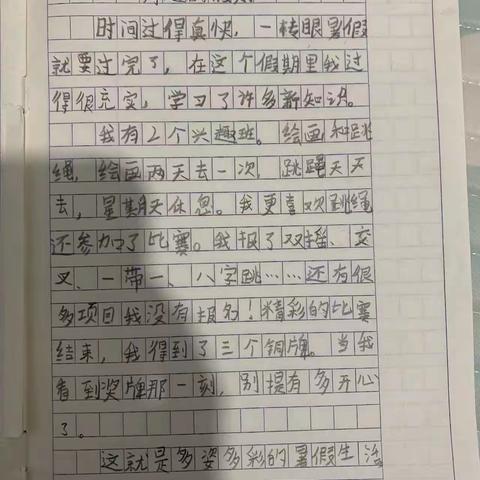 时间过得真快，一转眼暑假
就要过完了，在这个假期里我过
得很充实，学习了许多新知识。
我有2个兴趣班。绘画和跳
绳，绘画两天去一次，跳绳天天
去，星期天休息。我更喜欢跳绳
还参加了比赛。我报了双摇、交
叉、一带一、八字跳……还有很
多项目我没有报名！精彩的比赛
结束，我得到了三个铜牌。当我
看到奖牌那一刻，别提有多开心
了。
这就是多姿多彩的暑假生活